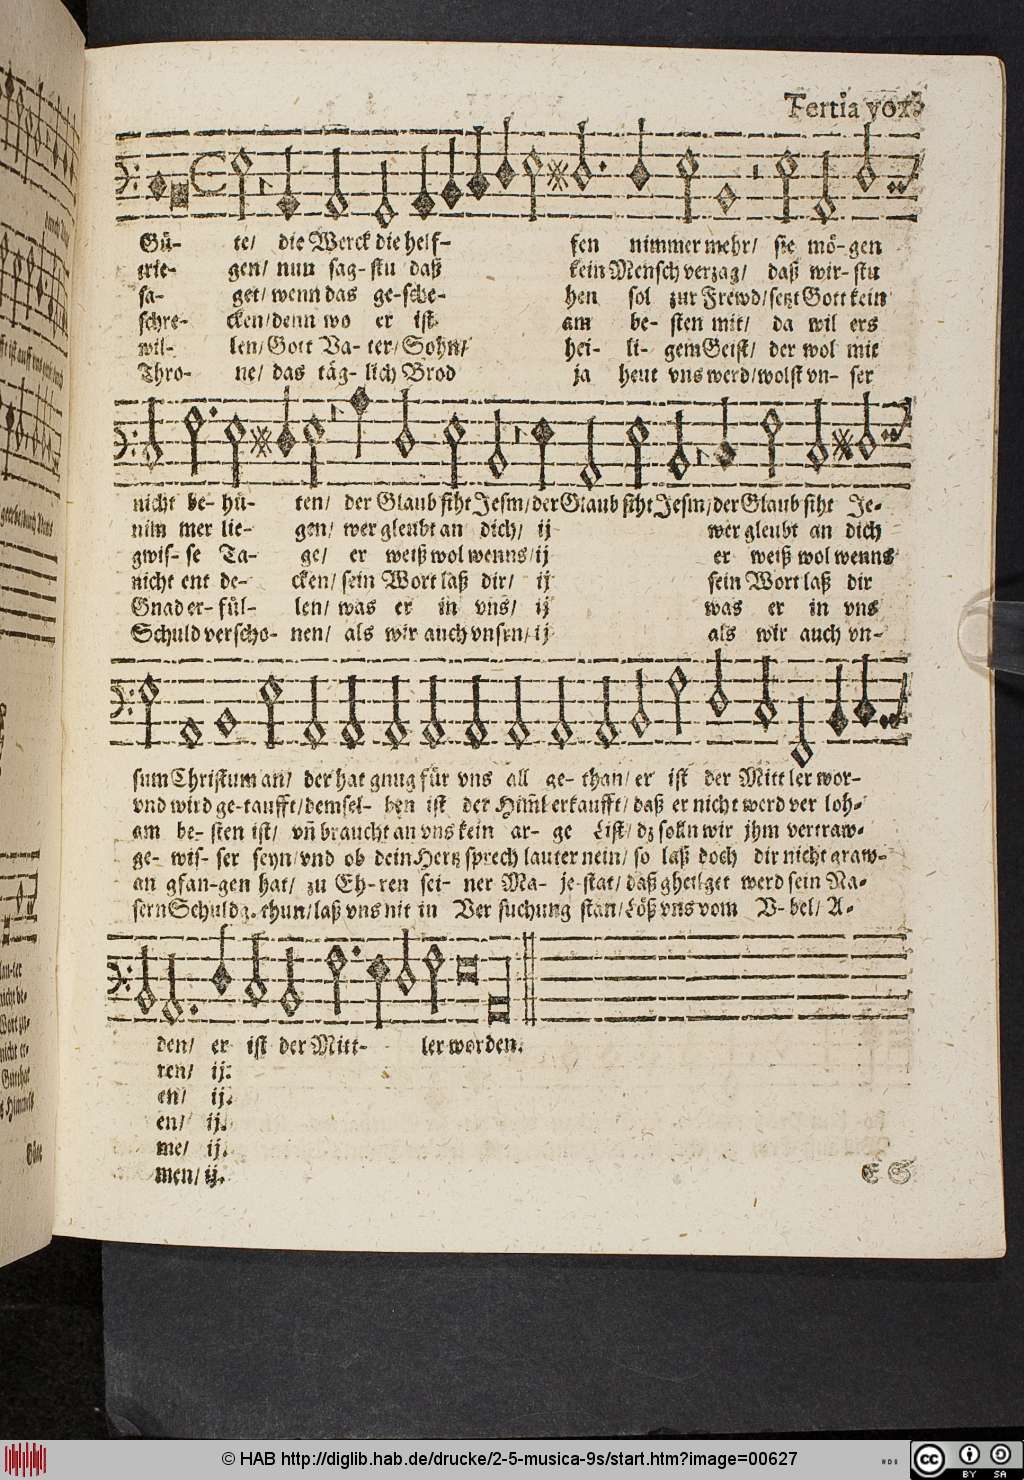 Tertia vox.
Gü- te/ die Werck die helf- fen nimmer mehr/ sie mö-gen
grie- gen/ nun sag-stu daß kein Mensch verzag/ daß wir-stu
sa- get/ wenn das ge-sche- hen sol zur Frewd/ setzt Gott kein
schre- cken/ denn wo er ist am be- sten mit/ da wil ers
wil- len/ Gott Va- ter/ Sohn/ hei- li- gem Geist/ der wol mit
Thro- ne/ das täg- lich Brod ja heut vns werd/ wolst vn- ser
nicht be- hü- ten/ der Glaub siht Jesm/ der Glaub siht Jesm/ der Glaub siht Je-
nim mer lie- gen/ wer gleubt an dich/ ij wer gleubt an dich
gwis- se Ta- ge/ er weiß wol wenns/ ij er weiß wol wenns
nicht ent de- cken/ sein Wort laß dir/ ij sein Wort laß dir
Gnad er- fül- len/ was er in vns/ ij was er in vns
Schuld verscho- nen/ als wir auch vnsrn/ ij als wir auch vn-
sum Christum an/ der hat gnug für vns all ge- than/ er ist der Mitt ler wor-
vnd wird ge-taufft/ demsel- ben ist der Him̃l erkaufft/ daß er nicht werd ver loh-
am be- sten ist/ vñ braucht an vns kein ar- ge List/ dz solln wir jhm vertraw-
ge- wis- ser seyn/ vnd ob dein Hertz sprech lauter nein/ so laß doch dir nicht graw-
an gfan-gen hat/ zu Eh-ren sei- ner Ma- je-stat/ daß gheilget werd sein Na-
sern Schuldg. thun/ laß vns nit in Ver suchung stan/ Löß vns vom V- bel/ A-
den/ er ist der Mitt- ler worden.
ren/ ij.
en/ ij.
en/ ij.
me/ ij.
men/ ij.
E S
© HAB http://diglib.hab.de/drucke/2-5-musica-9s/start.htm?image=00627
cc BY SA